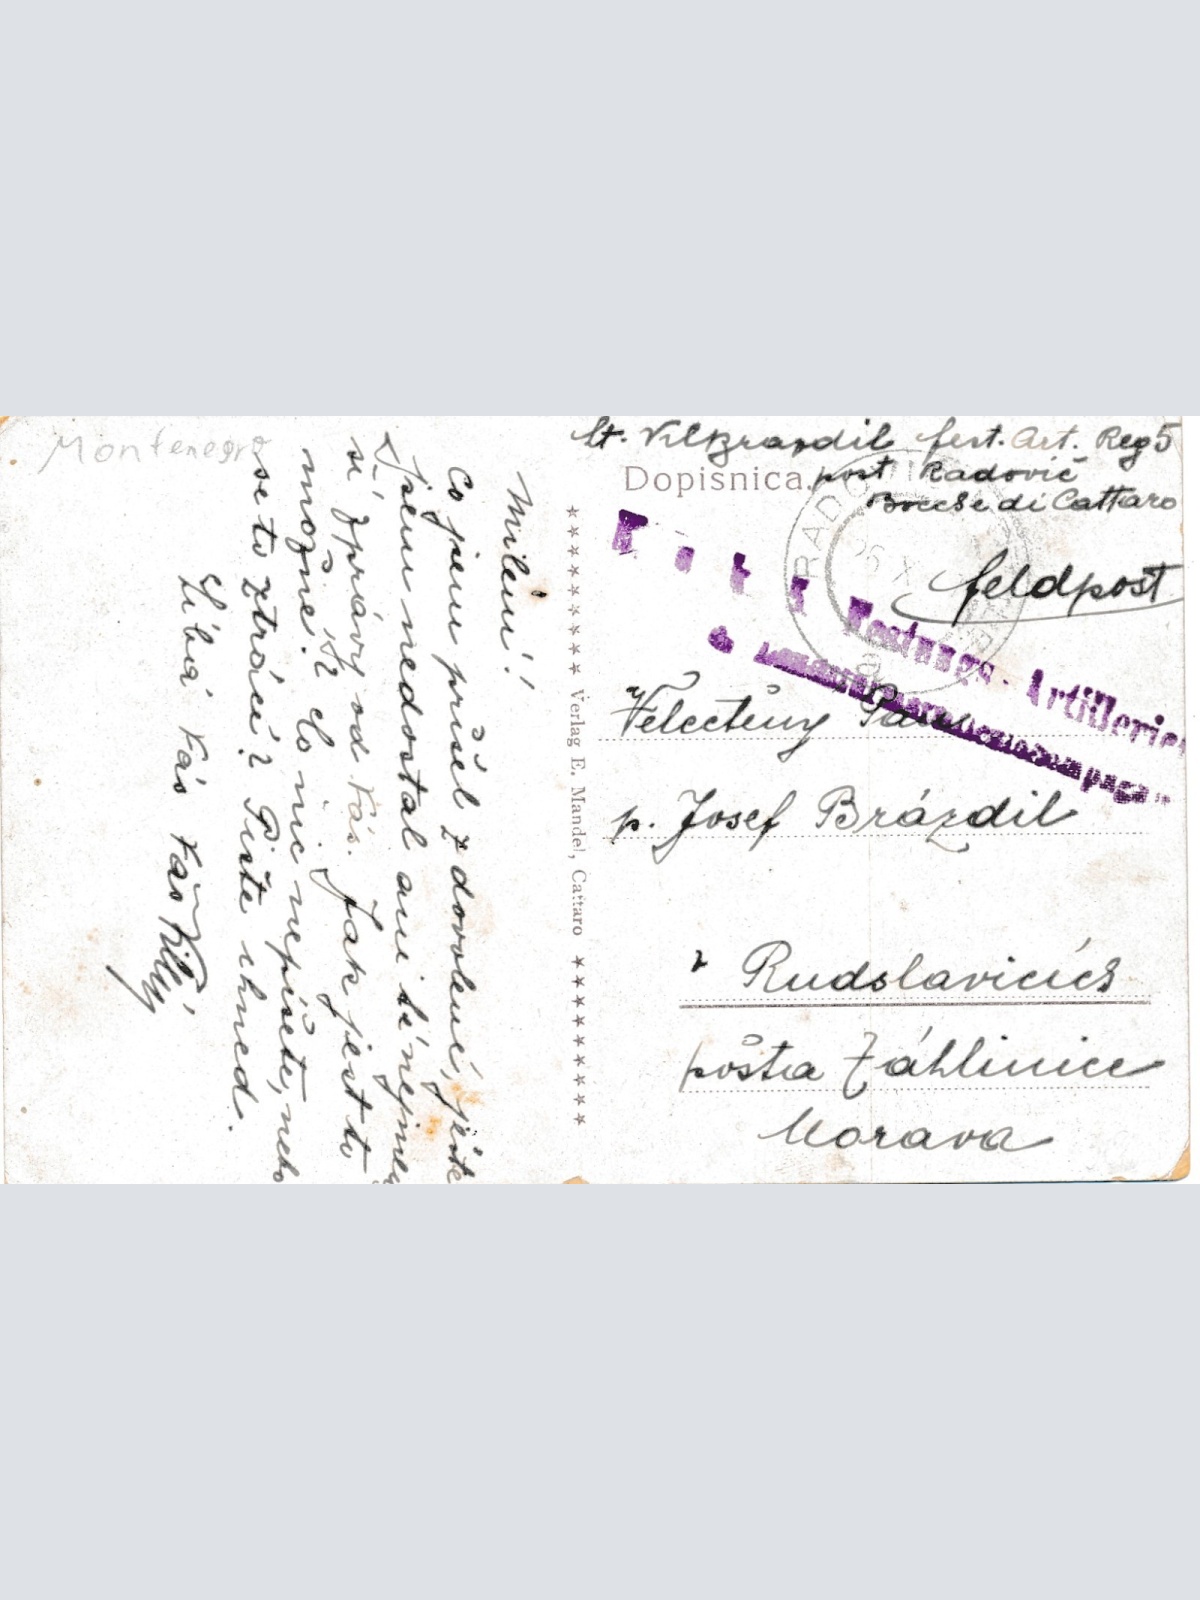 Montenegro
Milení!
Co jsem přišel z dovolené, ještě
jsem nedostal ani té nejmen
ší zprávy od Vás. Jak jest to
možné? Že nic nepíšete, nebo
se to ztrácí? Pište ihned.
Líbá Vás Váš Vilý
Verlag E. Mandel, Cattaro
lt. Vil Brazdil fest. Art. Reg 5
Dopisnica.
post Radović
Bocche di Cattaro
feldpost
RADO
K. u. k. Festungs-Artillerie
Velectěný Pan
p. Josef Brázdil
v Rudslavicích
pošta Záhlinice
Morava